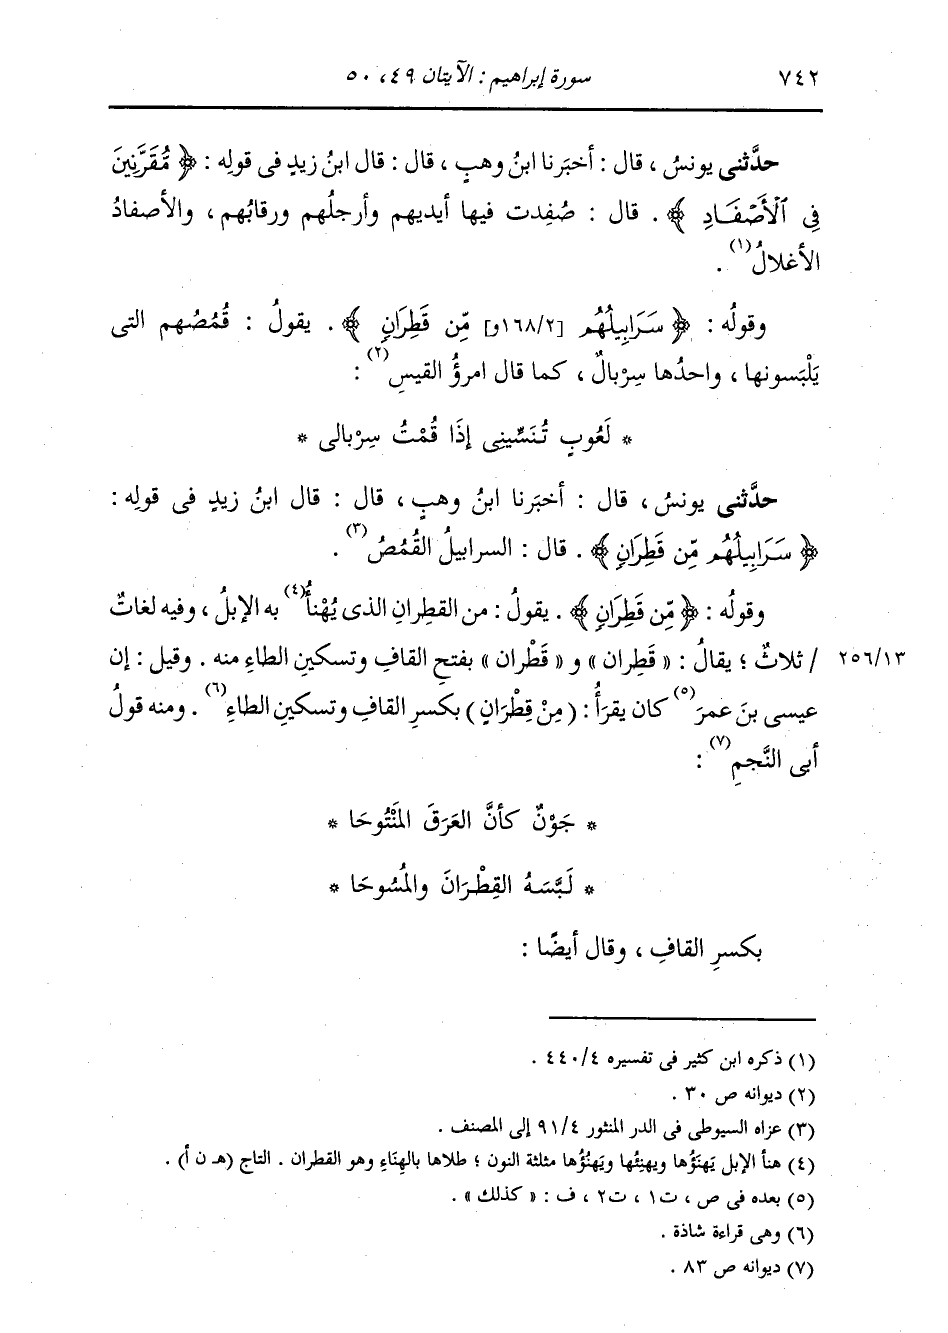 ٧٤٢ سورة إبراهيم : الآيتان ٤٩، ٥٠
حدَّثنى يونسُ ، قال : أخبَرنا ابنُ وهبٍ ، قال : قال ابنُ زيدٍ فى قولِه : ﴿ مُّقَرَّنِينَ
فِى ٱلْأَصْفَادِ ﴾ . قال : صُفِدت فيها أيديهم وأرجلُهم ورقابُهم ، والأصفادُ
الأغلالُ(١) .
وقولُه : ﴿ سَرَابِيلُهُم [١٦٨/٢و] مِّن قَطِرَانٍ ﴾ . يقولُ : قُمُصُهم التى
يَلْبَسونها ، واحدُها سِرْبالٌ ، كما قال امرؤُ القيسِ(٢) :
* لَعُوبٍ تُنَسِّينِى إذَا قُمْتُ سِرْبالى *
حدَّثنى يونسُ ، قال : أخبَرنا ابنُ وهبٍ ، قال : قال ابنُ زيدٍ فى قولِه :
﴿ سَرَابِيلُهُم مِّن قَطِرَانٍ ﴾ . قال : السرابيلُ القُمُصُ(٣) .
وقولُه : ﴿ مِّن قَطِرَانٍ ﴾ . يقولُ : من القطِرانِ الذى يُهْنأُ(٤) به الإبلُ ، وفيه لغاتٌ
٢٥٦/١٣ / ثلاثٌ ؛ يقالُ : « قَطِران » و « قَطْران » بفتحِ القافِ وتسكينِ الطاءِ منه . وقيل : إن
عيسى بنَ عمرَ(٥) كان يقرَأُ : ( مِنْ قِطْرَانٍ ) بكسرِ القافِ وتسكينِ الطاءِ(٦) . ومنه قولُ
أبى النَّجمِ(٧) :
* جَوْنٌ كأنَّ العَرَقَ المَنْتُوحَا *
* لَبَّسَهُ القِطْرَانَ والمُسُوحَا *
بكسرِ القافِ ، وقال أيضًا :
(١) ذكره ابن كثير فى تفسيره ٤/ ٤٤٠ .
(٢) ديوانه ص ٣٠ .
(٣) عزاه السيوطى فى الدر المنثور ٩١/٤ إلى المصنف .
(٤) هنأ الإبل يَهنَؤُها ويهنِئُها ويَهنُؤُها مثلثة النون ؛ طلاها بالهِنَاءِ وهو القطران . التاج (هـ ن أ) .
(٥) بعده فى ص ، ت١ ، ت٢ ، ف : « كذلك » .
(٦) وهى قراءة شاذة .
(٧) ديوانه ص ٨٣ .